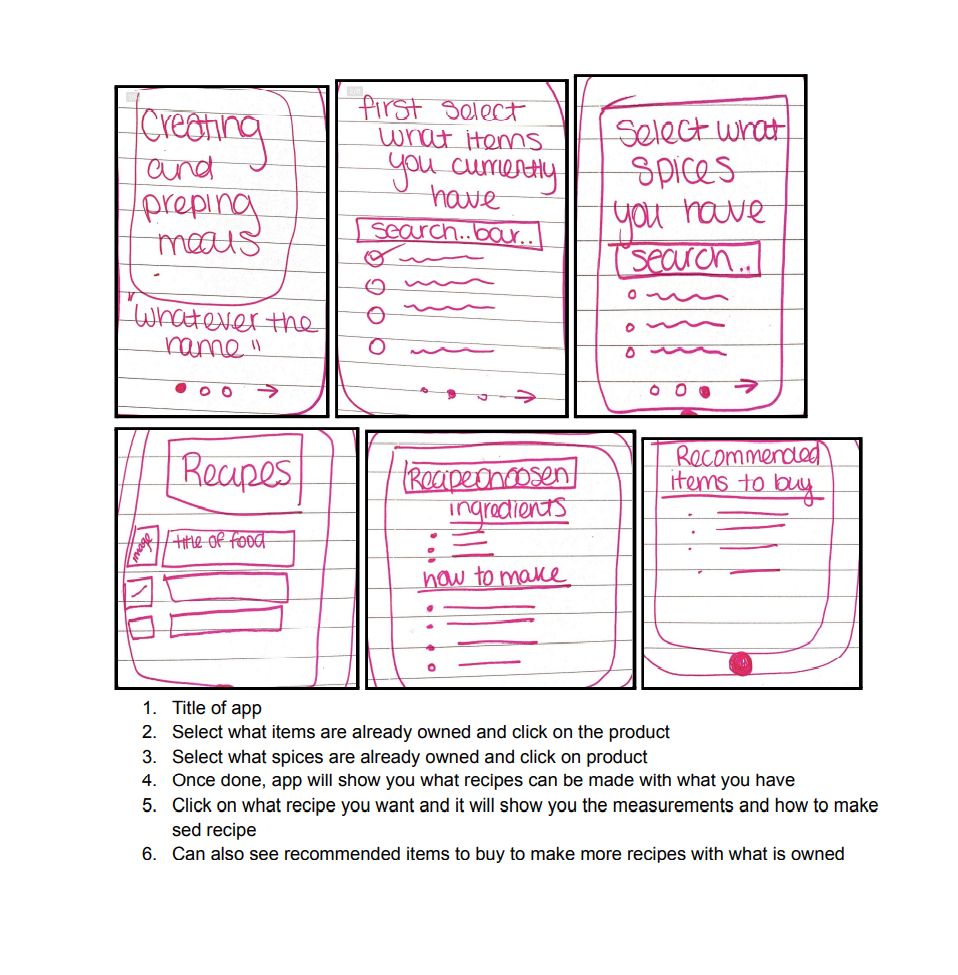 Creating
and
preping
meals
"Whatever the
name"
first select
what items
you currently
have
search..bar..
Select what
spices
you have
search..
Recipes
image
title of food
Recipe choosen
ingredients
how to make
Recommended
items to buy
1. Title of app
2. Select what items are already owned and click on the product
3. Select what spices are already owned and click on product
4. Once done, app will show you what recipes can be made with what you have
5. Click on what recipe you want and it will show you the measurements and how to make
sed recipe
6. Can also see recommended items to buy to make more recipes with what is owned